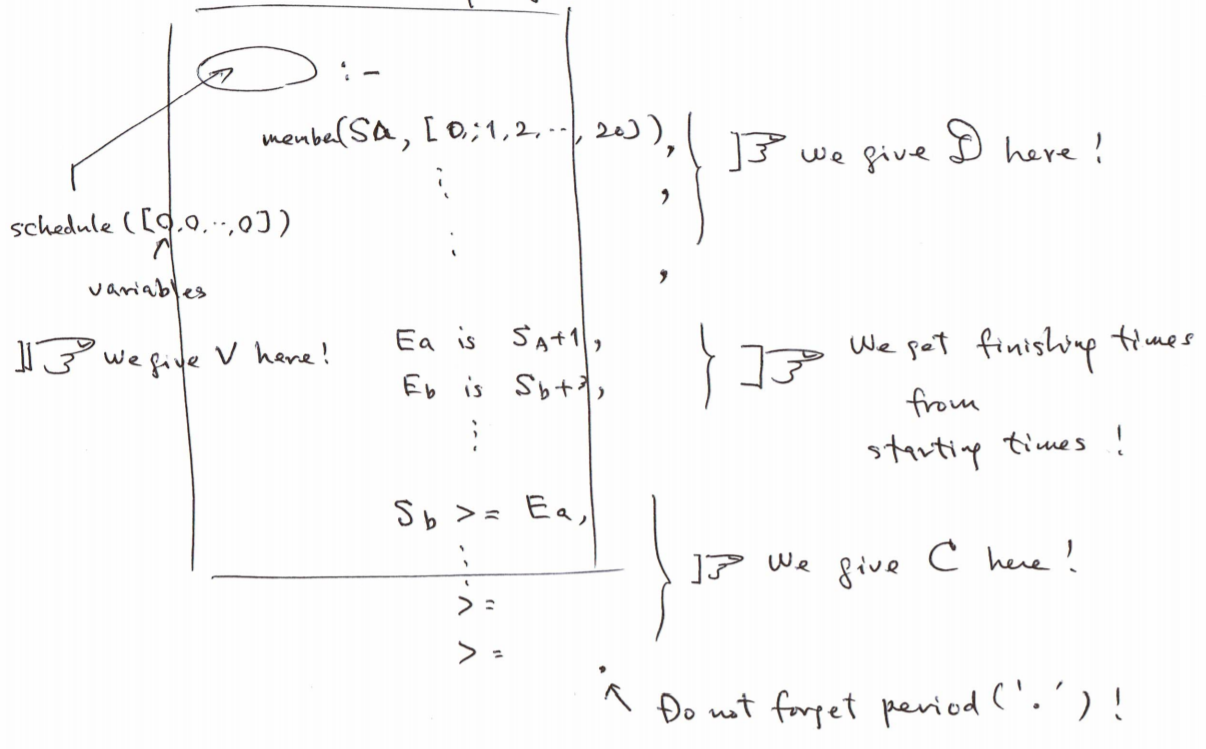 :-
member(SA, [0,1,2,..,20]),
we give D here!
,
schedule([0,0,..,0])
,
variables
we give V here!
Ea is SA+1,
Eb is Sb+3,
We get finishing times
from
starting times!
Sb >= Ea,
We give C here!
>=
>=
.
Do not forget period ('.')!